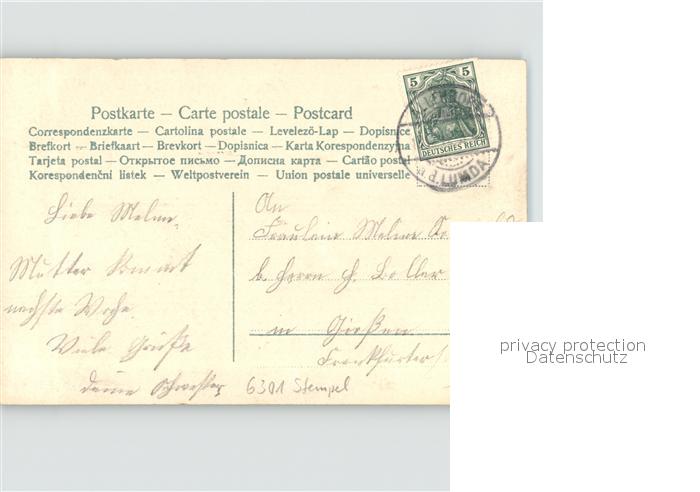 Postkarte — Carte postale — Postcard
Correspondenzkarte — Cartolina postale — Levelező-Lap — Dopisnice
Brefkort — Briefkaart — Brevkort — Dopisnica — Karta Korespondenzyjna
Tarjeta postal — Открытое письмо — Дописна карта — Cartão postal
Korespondenční listek — Weltpostverein — Union postale universelle
5 5
DEUTSCHES REICH
LUMDA
Liebe
Mutter kommt
nächste Woche.
Viele Grüße
deine Schwester
An
Fräulein
b. Herrn H.
in Gießen
Frankfurter
6301 Stempel
privacy protection
Datenschutz